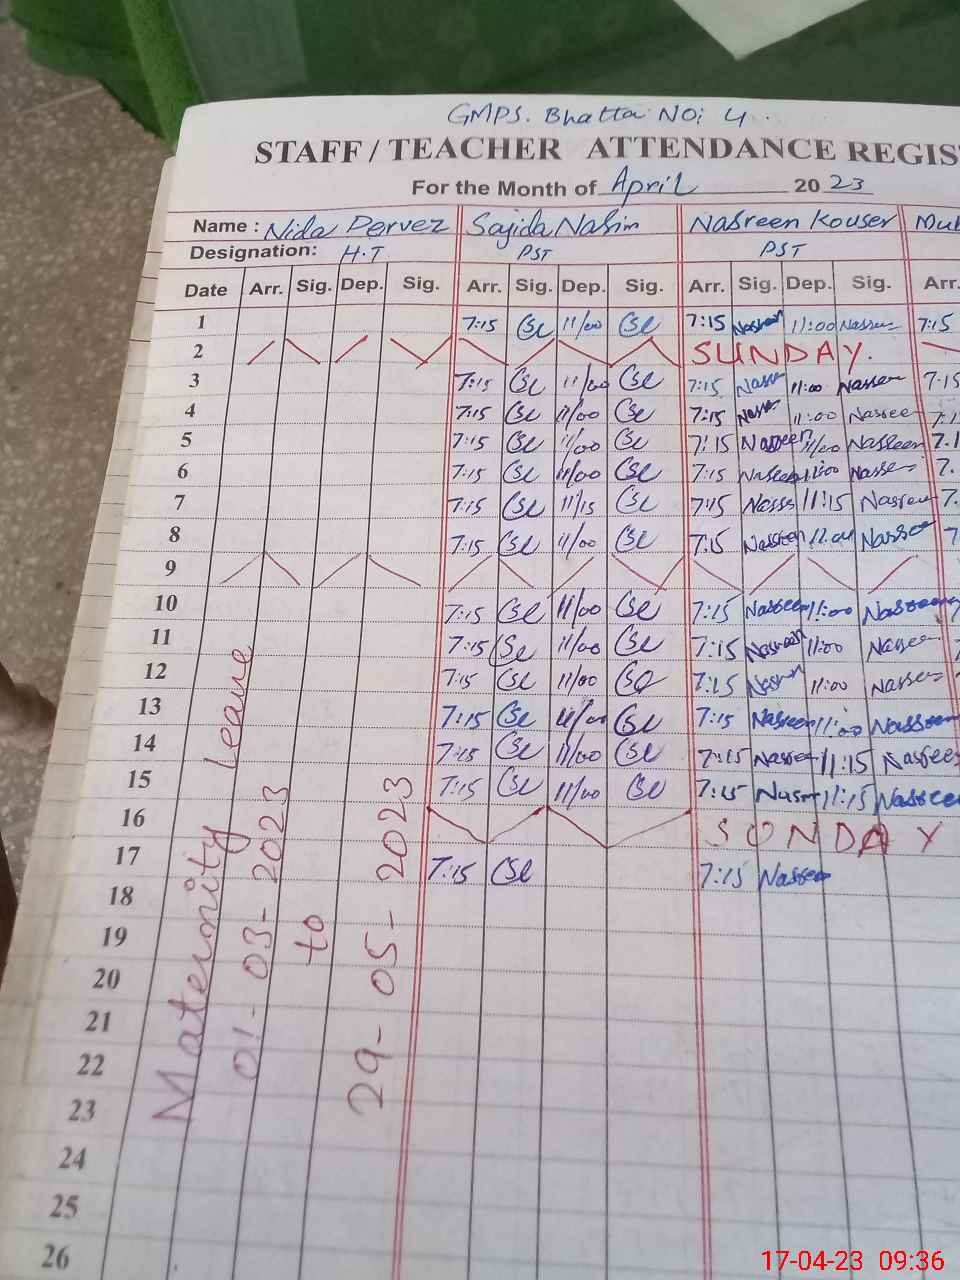 GMPS. Bhatta NO: 4
STAFF / TEACHER ATTENDANCE REGIS
For the Month of April 2023
Name : Nida Pervez Sajida Nasim Nasreen Kouser Mub
Designation: H.T PST PST
Date Arr. Sig. Dep. Sig. Arr. Sig. Dep. Sig. Arr. Sig. Dep. Sig. Arr.
1 7:15 11/00 7:15 Nasreen 11:00 Nasreen 7:15
2 SUNDAY.
3 7:15 11/00 7:15 11:00 Nasreen 7:15
4 7:15 11/00 7:15 11:00 Nasree 7:1
5 7:15 11/00 7:15 Nasreen 11/00 Nasreen 7.1
6 7:15 11/00 7:15 Nasreen 11:00 Nasree 7.
7 7:15 11/15 7:15 11:15 Nasreen 7.
8 7:15 11/00 7:15 Nasreen 11:00 Nasree 7
9
10 7:15 11/00 7:15 Nasreen 11:00 Nasreen
11 7:15 11/00 7:15 Nasreen 11:00 Nasree
12 7:15 11/00 7:15 Nasreen 11:00 Nasree
13 7:15 11/00 7:15 Nasreen 11:00 Nasreen
14 7:15 11/00 7:15 Nasree 11:15 Nasrees
15 7:15 11/00 7:15 11:15 Nasreen
16 SUNDAY
17 7:15 7:15 Nasree
18
19
20
21
22
23
24
25
26
Maternity Leave
01-03-2023
to
29-05-2023
17-04-23 09:36